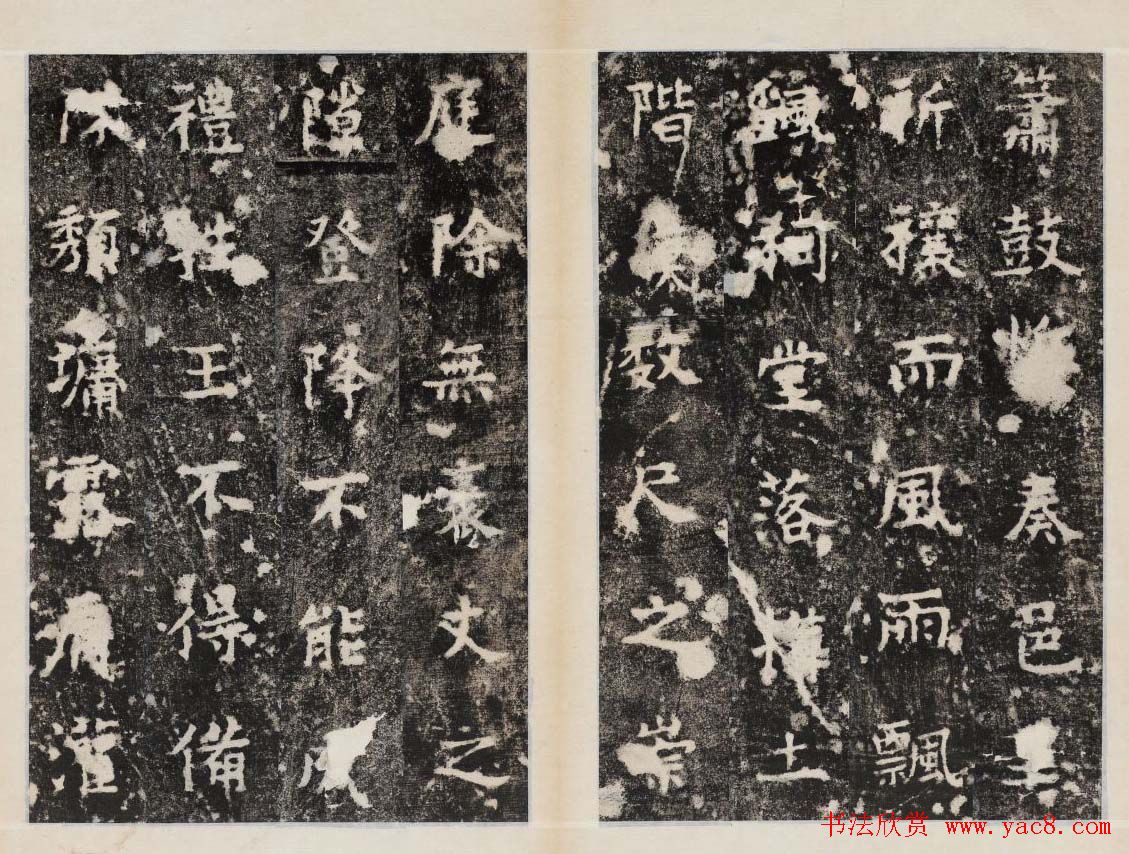 簫鼓奏邑里
祈禳而風雨飄
颻祠堂落構土
階數尺之崇
庭除無袤丈之
隙登降不能成
禮牲王不得備
陳頹墉露灌
书法欣赏 www.yac8.com